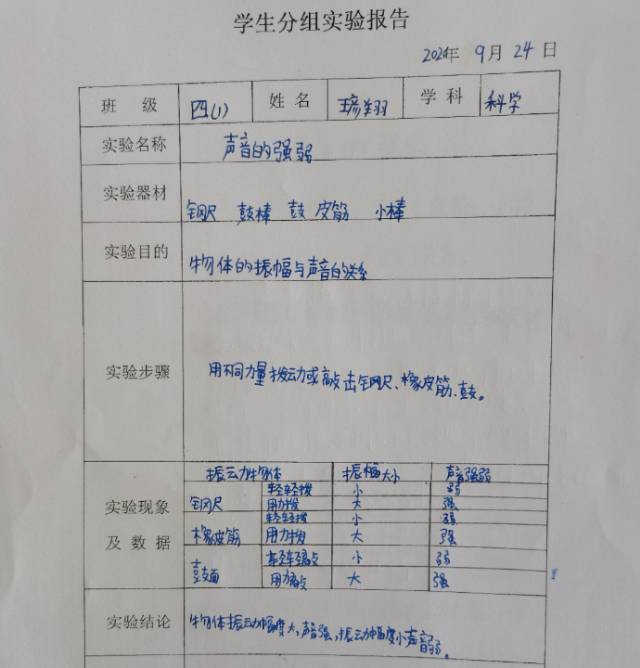 学生分组实验报告
2020年 9月 24日
班 级 四(1) 姓 名 翔 学 科 科学
实验名称 声音的强弱
实验器材 钢尺 鼓棒 鼓 皮筋 小棒
实验目的 物体的振幅与声音的关系
实验步骤 用不同力量拨动或敲击钢尺、橡皮筋、鼓。
实验现象及 数 据
振动物体 振幅大小 声音强弱
钢尺 轻轻拨 小 弱
用力拨 大 强
橡皮筋 轻轻拨 小 弱
用力拨 大 强
鼓面 轻轻敲 小 弱
用力敲 大 强
实验结论 物体振动幅度大,声音强,振动幅度小声音弱。